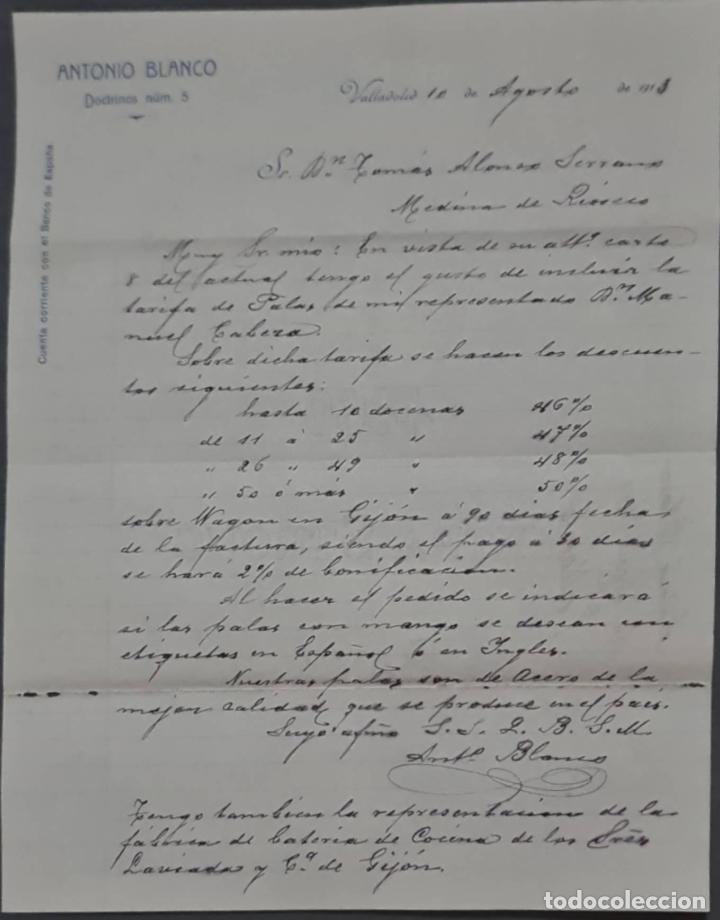 ANTONIO BLANCO
Doctrinos núm. 5
Cuenta corriente con el Banco de España
Valladolid 10 de Agosto de 191
Sr. Dn. Tomás Alonso Serrano
Medina de Rioseco
Muy Sr. mio: En vista de su attª. carta
8 del actual tengo el gusto de incluir la
tarifa de Palas de mi representado Dn. Ma-
nuel Cabeza.
Sobre dicha tarifa se hacen los descuen-
tos siguientes:
hasta 10 docenas 46%
de 11 á 25 " 47%
" 26 " 49 " 48%
" 50 ó más " 50%
sobre Wagon en Gijón á 90 dias fecha
de la factura, siendo el pago á 30 dias
se hará 2% de bonificación.
Al hacer el pedido se indicará
si las palas con mango se desean con
etiquetas en Español ó en Ingles.
Nuestras palas son de Acero de la
mejor calidad que se produce en el pais.
Suyo afmo S. S. Q. B. S. M.
Antº. Blanco
Tengo tambien la representacion de la
fábrica de bateria de Cocina de los Sres
Laviada y Cª. de Gijón.
todocoleccion.net